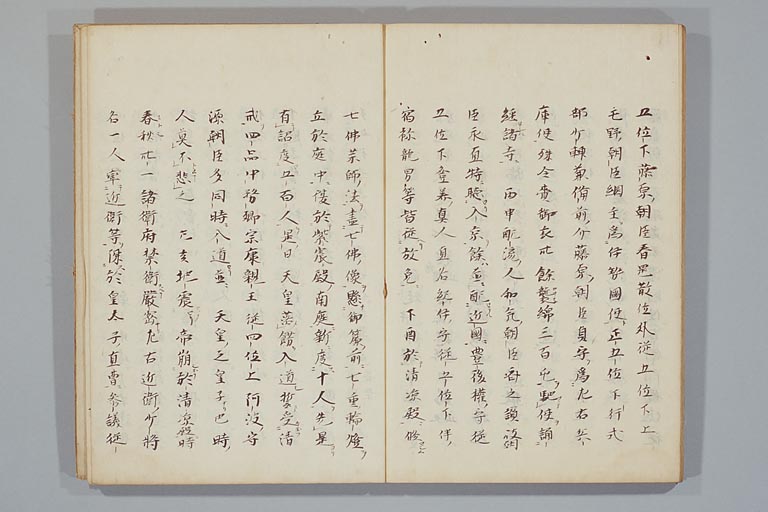 五位下藤原朝臣春岡散位外從五位下上
毛野朝臣綱主爲伊勢國使正五位下行式
部少輔兼備前介藤原朝臣貞守爲左右兵
庫使殊令賚御衣
餘襲綿三百屯馳使誦
經諸寺 丙申配流人和氣朝臣
臣永直特聽入京餘並配近國豊後權守從
五位下登美真人直名
伊守從五位下伴
宿祢龍男等皆從放免 丁酉於清凉殿修
七佛藥師法畫七佛像懸御簾前七重輪燈
立於庭中復於紫宸殿南庭新度十人先是
有詔度五百人是日天皇落餝入道誓受清
戒四品中務卿宗康親王從四位上阿波守
源朝臣多同時入道並天皇之皇子也時
人莫不悲之 己亥地震帝崩於清凉殿時
春秋卌一諸衛府禁衛嚴密左右近衛少將
各一人率近衛等陣於皇太子直曹參議從